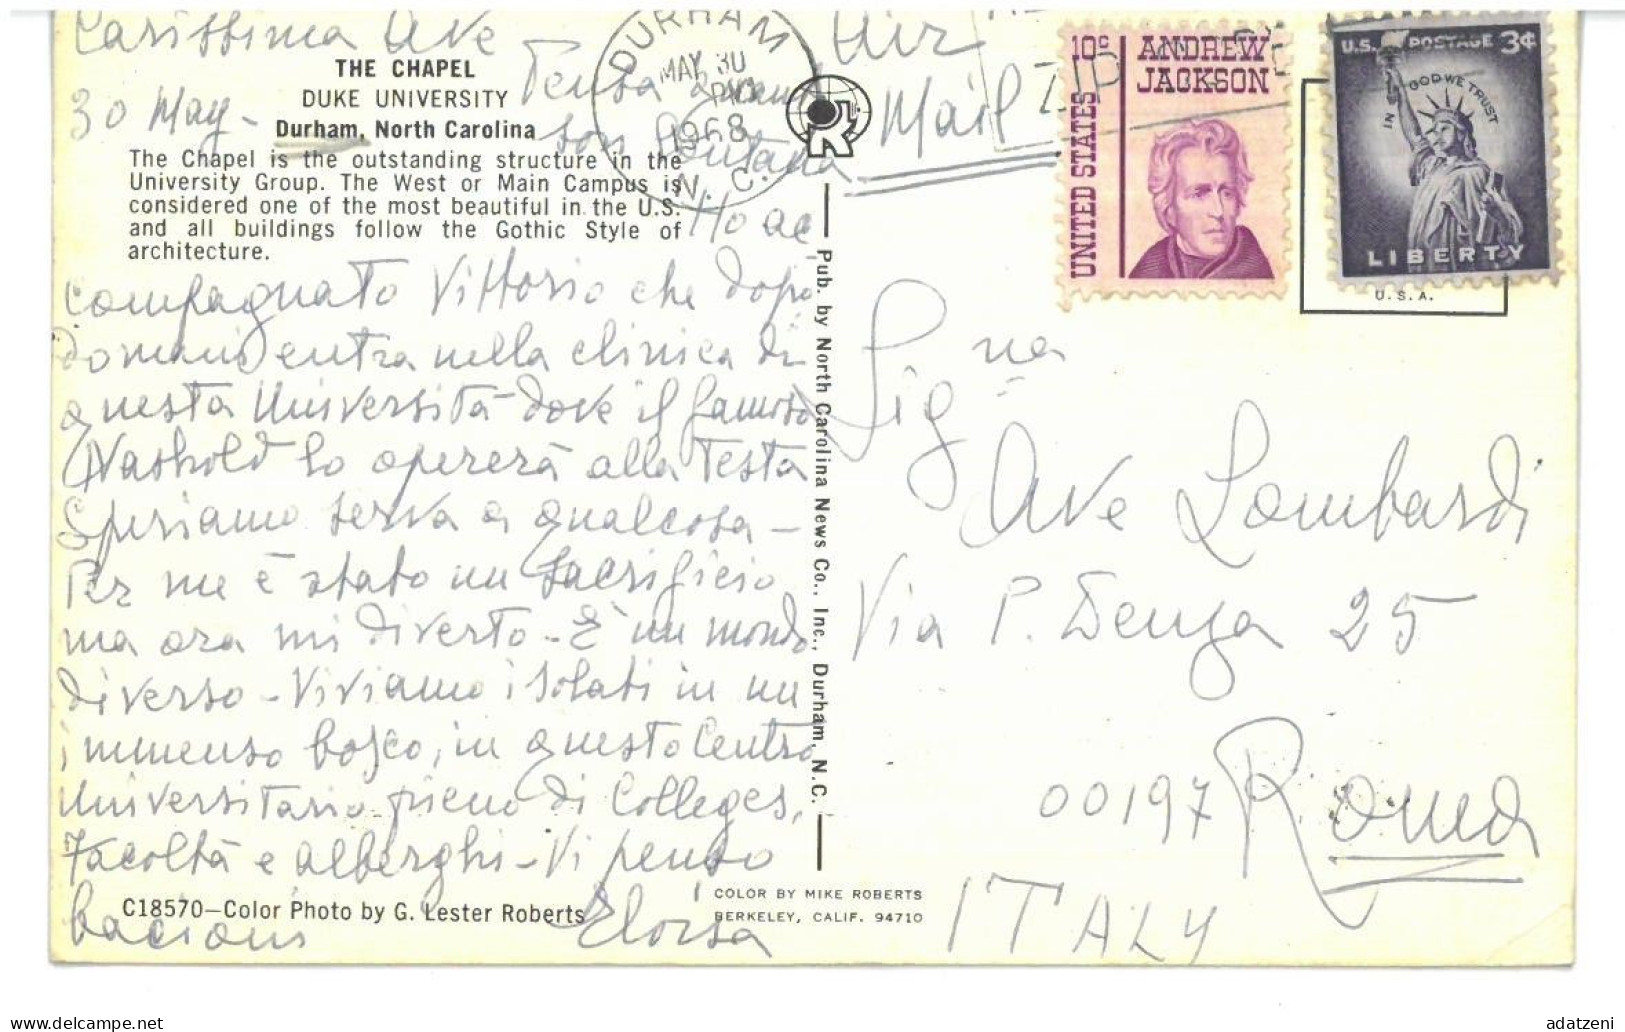 Carissima Ave
30 May-
Pensa quanto
son lontana
Ho ac
compagnato Vittorio che dopo
domani entra nella clinica di
questa Università dove il famoso
Nashold lo opererà alla testa
Speriamo serva a qualcosa -
Per me è stato un sacrificio
ma ora mi diverto - È un mondo
diverso - Viviamo isolati in un
immenso bosco, in questo Centro
Universitario pieno di Colleges,
Facoltà e alberghi - Vi penso
bacioni Eloisa
THE CHAPEL
DUKE UNIVERSITY
Durham, North Carolina
The Chapel is the outstanding structure in the
University Group. The West or Main Campus is
considered one of the most beautiful in the U.S.
and all buildings follow the Gothic Style of
architecture.
C18570—Color Photo by G. Lester Roberts
Pub. by North Carolina News Co., Inc., Durham, N.C.
COLOR BY MIKE ROBERTS
BERKELEY, CALIF. 94710
DURHAM
MAY 30
PM
1968
N. C.
Air
Mail
ZIP
10c ANDREW
JACKSON
UNITED STATES
U.S. POSTAGE 3¢
IN GOD WE TRUST
LIBERTY
U.S.A.
Sig.na
Ave Lombardi
Via P. Denza 25
00197 Roma
ITALY
delcampe.net
adatzeni